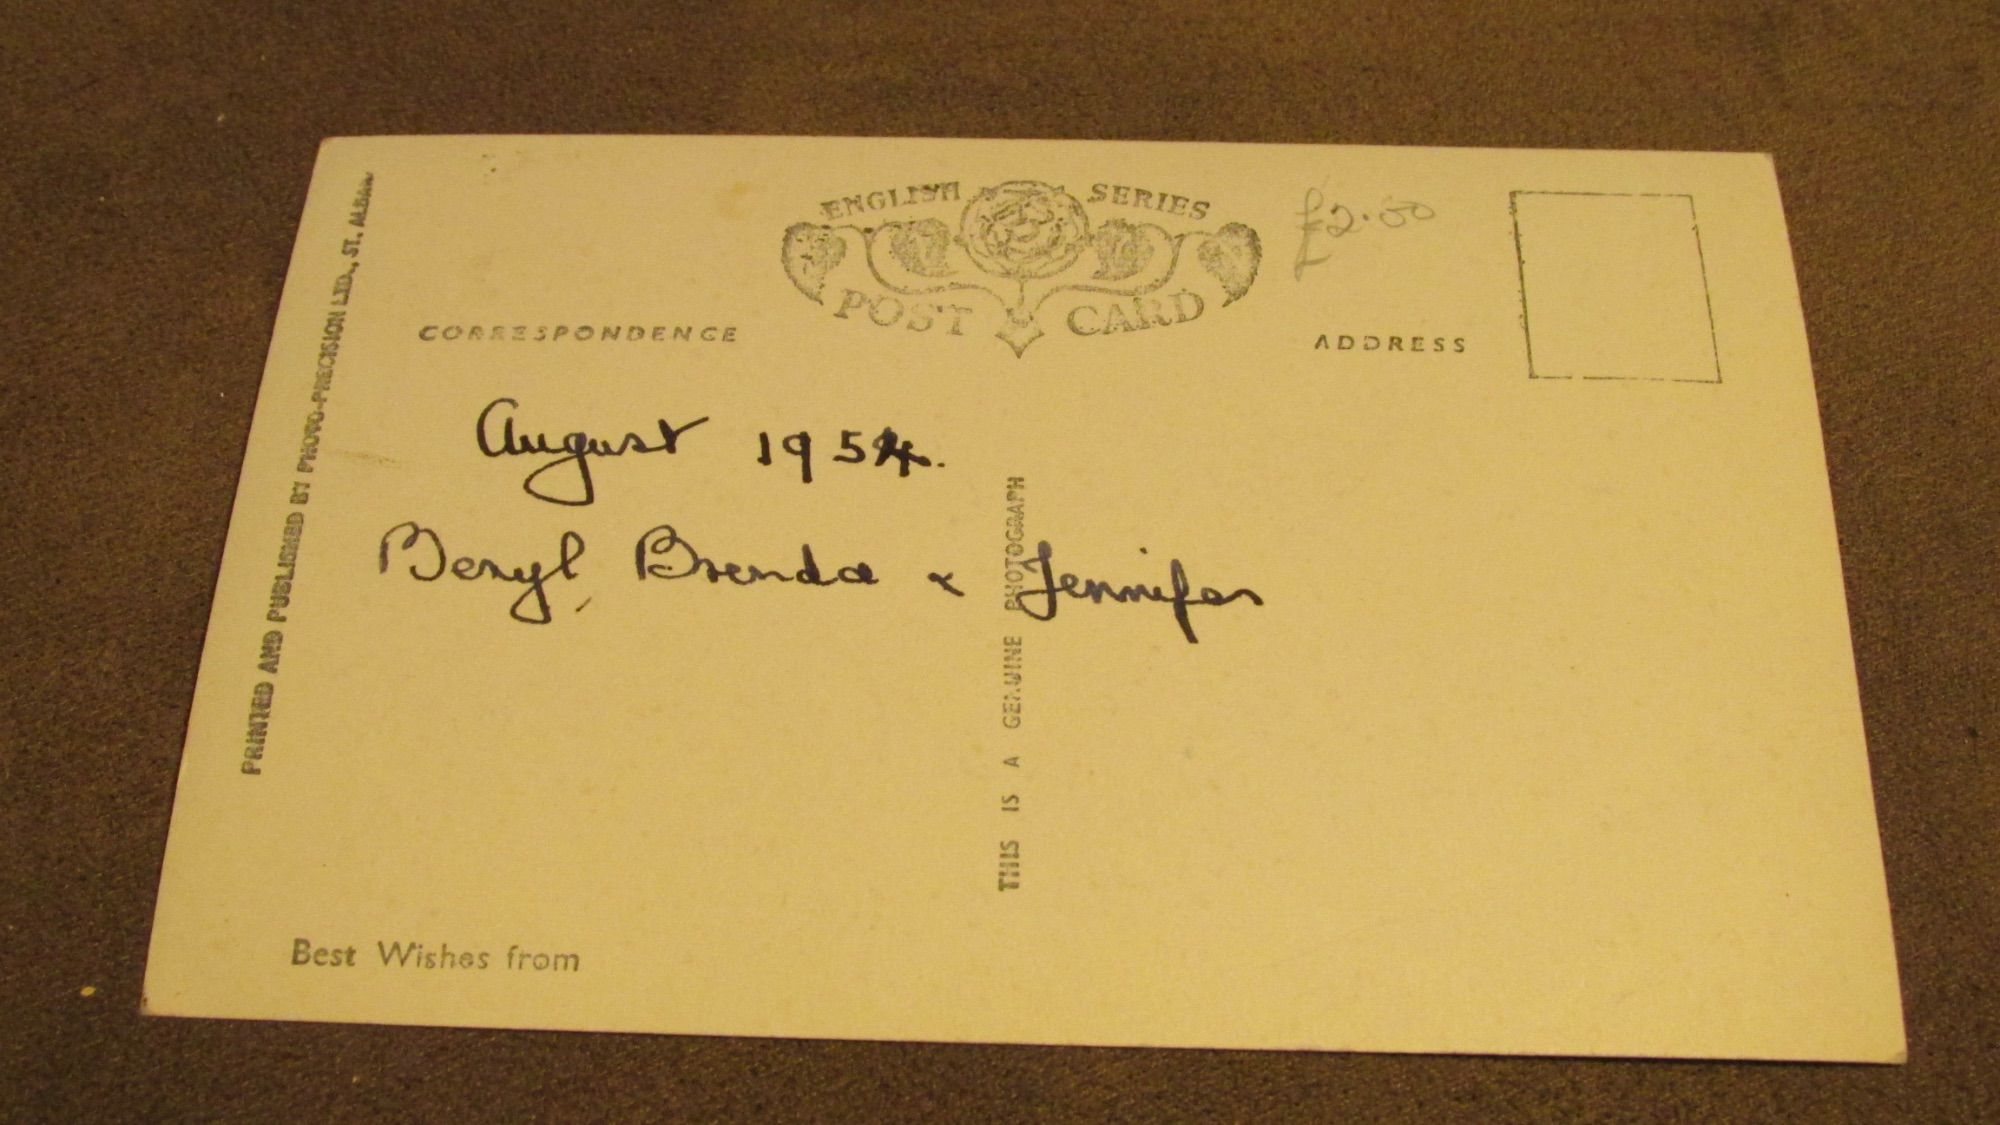 ENGLISH SERIES
POST CARD
£2.00
CORRESPONDENCE
ADDRESS
August 1954.
Beryl, Brenda & Jennifer
Best Wishes from
PRINTED AND PUBLISHED BY PHOTO-PRECISION LTD., ST. ALBANS
THIS IS A GENUINE PHOTOGRAPH